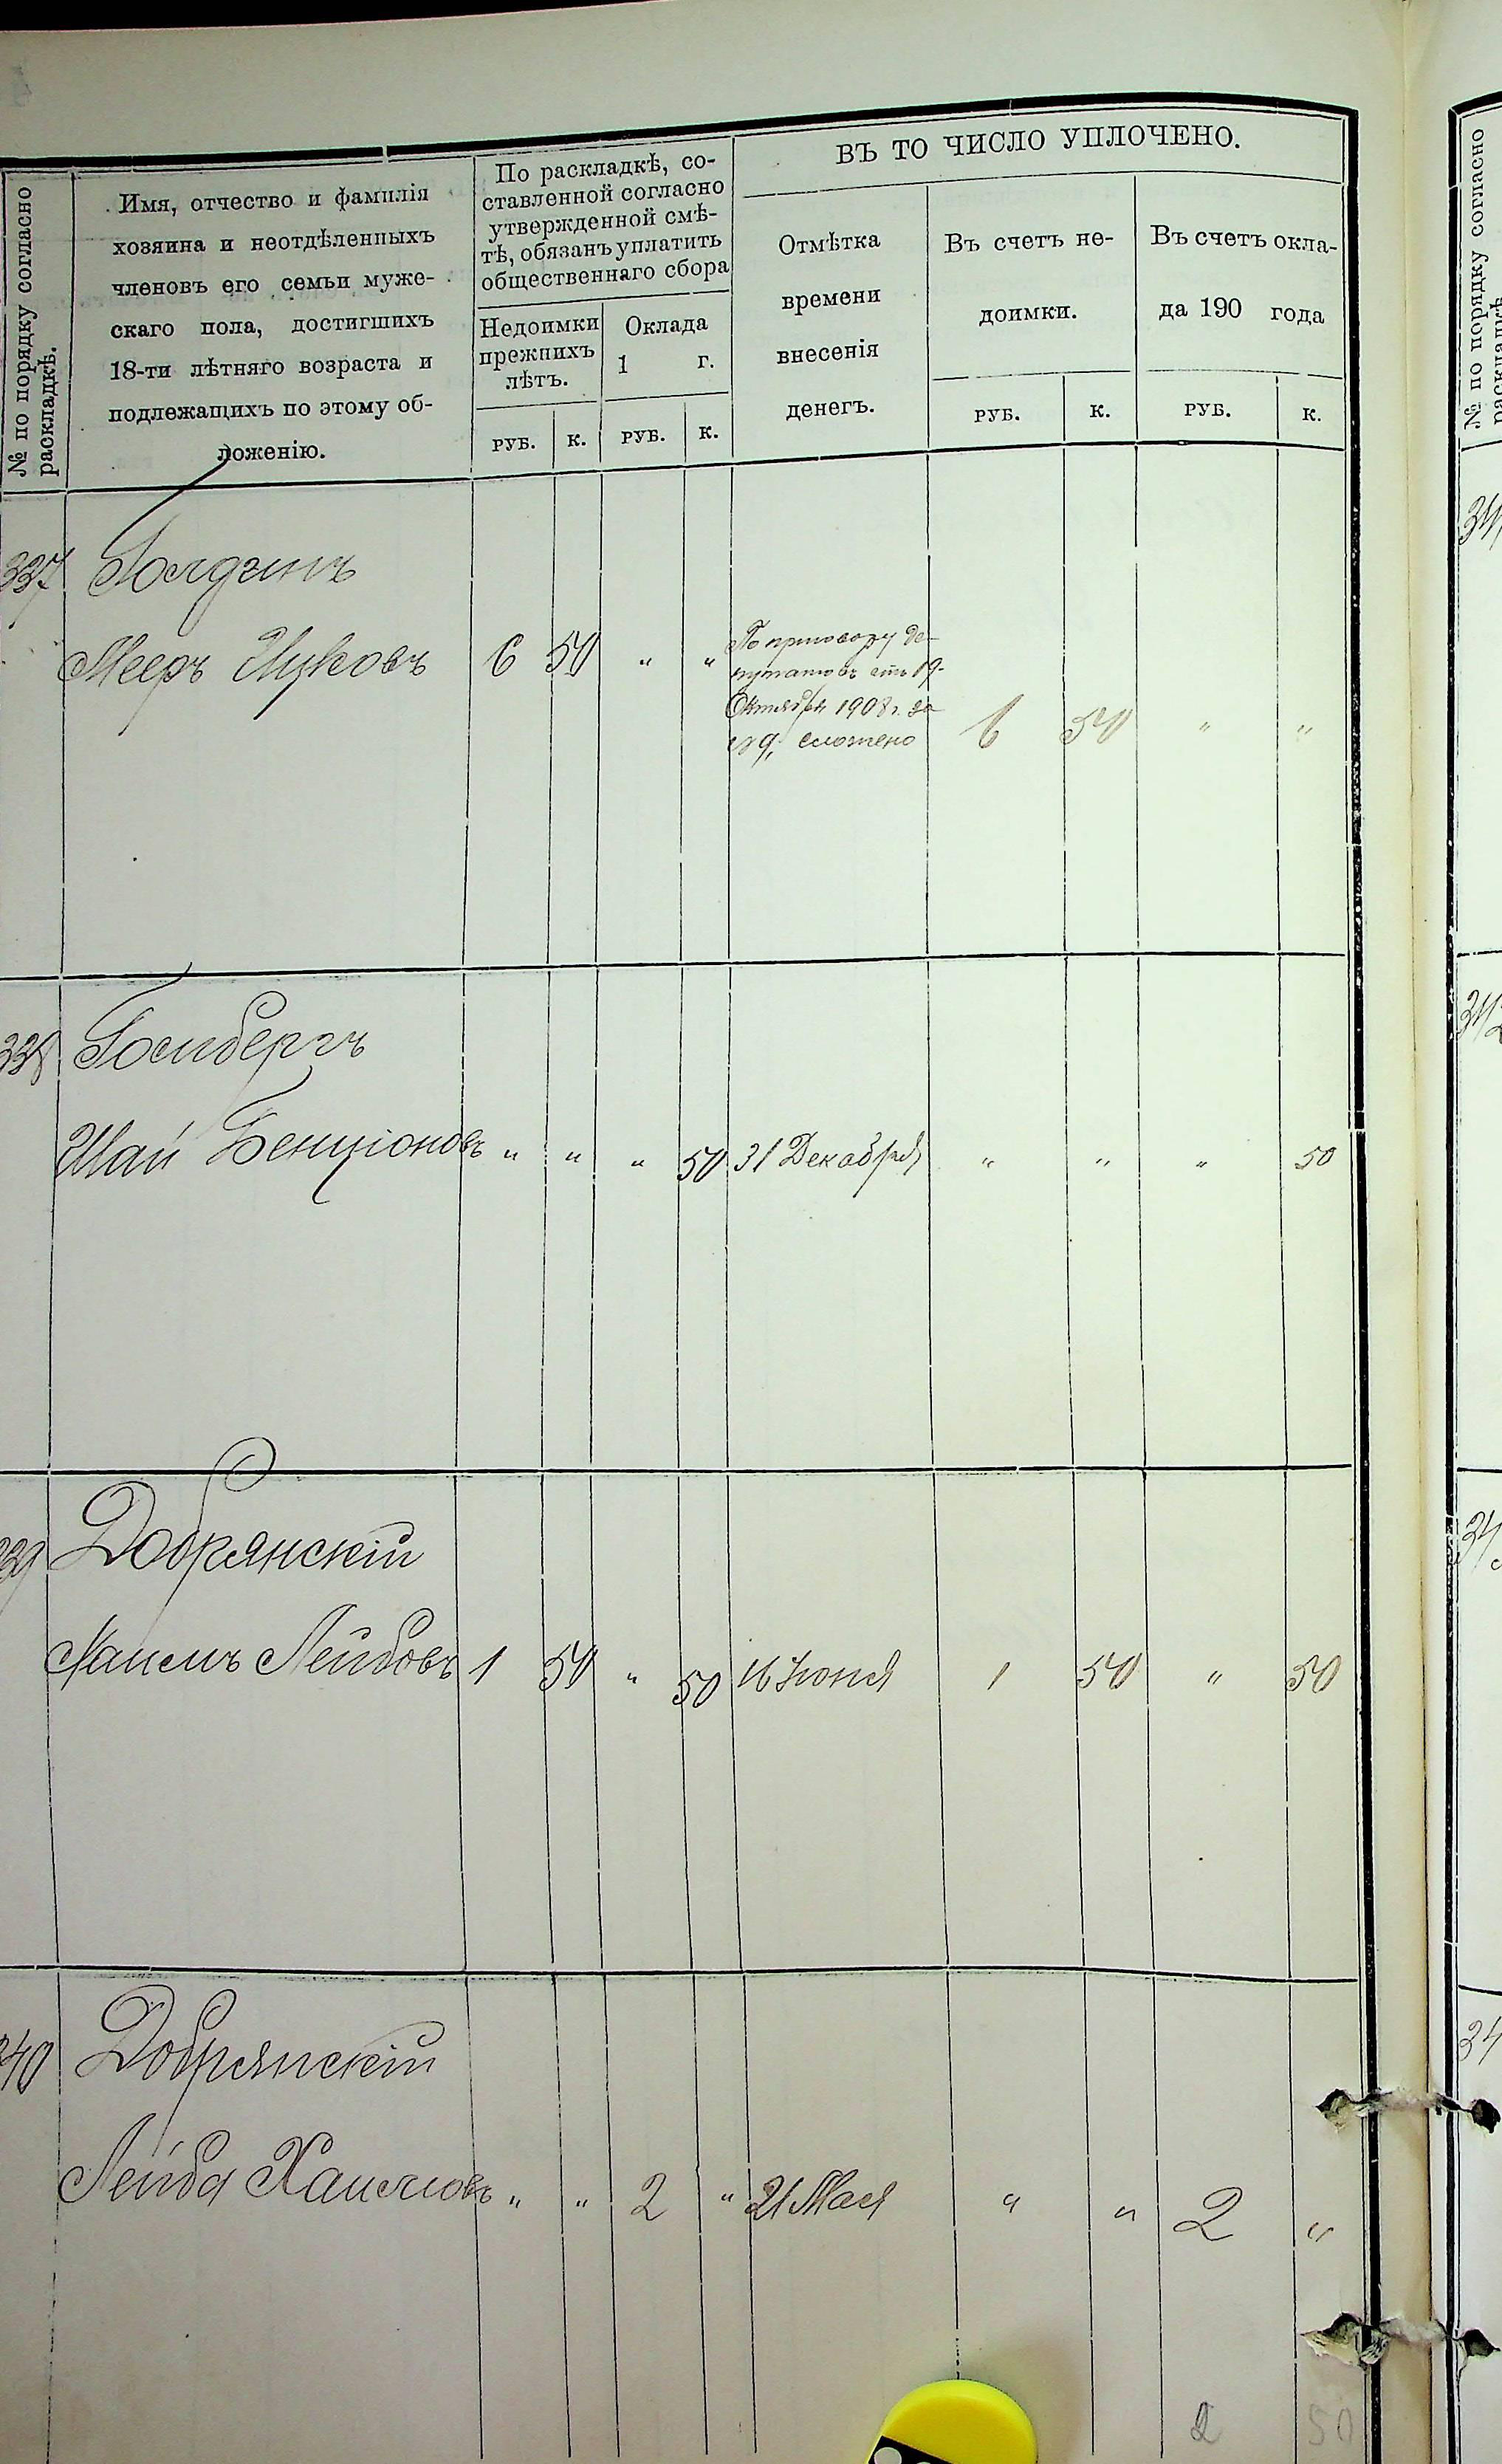 № по порядку согласно
раскладкѣ.
Имя, отчество и фамилія
хозяина и неотдѣленныхъ
членовъ его семьи муже-
скаго пола, достигшихъ
18-ти лѣтняго возраста и
подлежащихъ по этому об-
ложенію.
По раскладкѣ, со-
ставленной согласно
утвержденной смѣ-
тѣ, обязанъ уплатить
общественнаго сбора
Недоимки
прежнихъ
лѣтъ.
Оклада
1 г.
РУБ. К. РУБ. К.
ВЪ ТО ЧИСЛО УПЛОЧЕНО.
Отмѣтка
времени
внесенія
денегъ.
Въ счетъ не-
доимки.
Въ счетъ окла-
да 190 года
РУБ. К. РУБ. К.
337 Голдинъ
Мееръ Ицковъ 6 50 " "
По приговору де-
путатовъ отъ 19
Октября 1908 г. за
сложено
6 50 " "
338
Шай Бенціоновъ " " " 50 31 Декабря " " " 50
339 Добрянскій
Хаимъ Лейбовъ 1 50 " 50 16 Іюня 1 50 " 50
340 Добрянскій
Лейба Хаимовъ " " 2 " 21 Мая " " 2 "
2 50
№ по порядку согласно
раскладкѣ